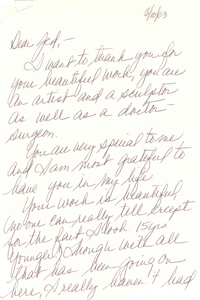 5/10/03
Dear God, -
I want to thank you for
your beautiful work, you are
an artist and a sculptor
as well as a doctor -
surgeon.
You are very special to me
and I am most grateful to
have you in my life
Your work is beautiful
no one can really tell except
for the fact I look 15yrs
younger, though with all
that has been going on
here, I really haven't had